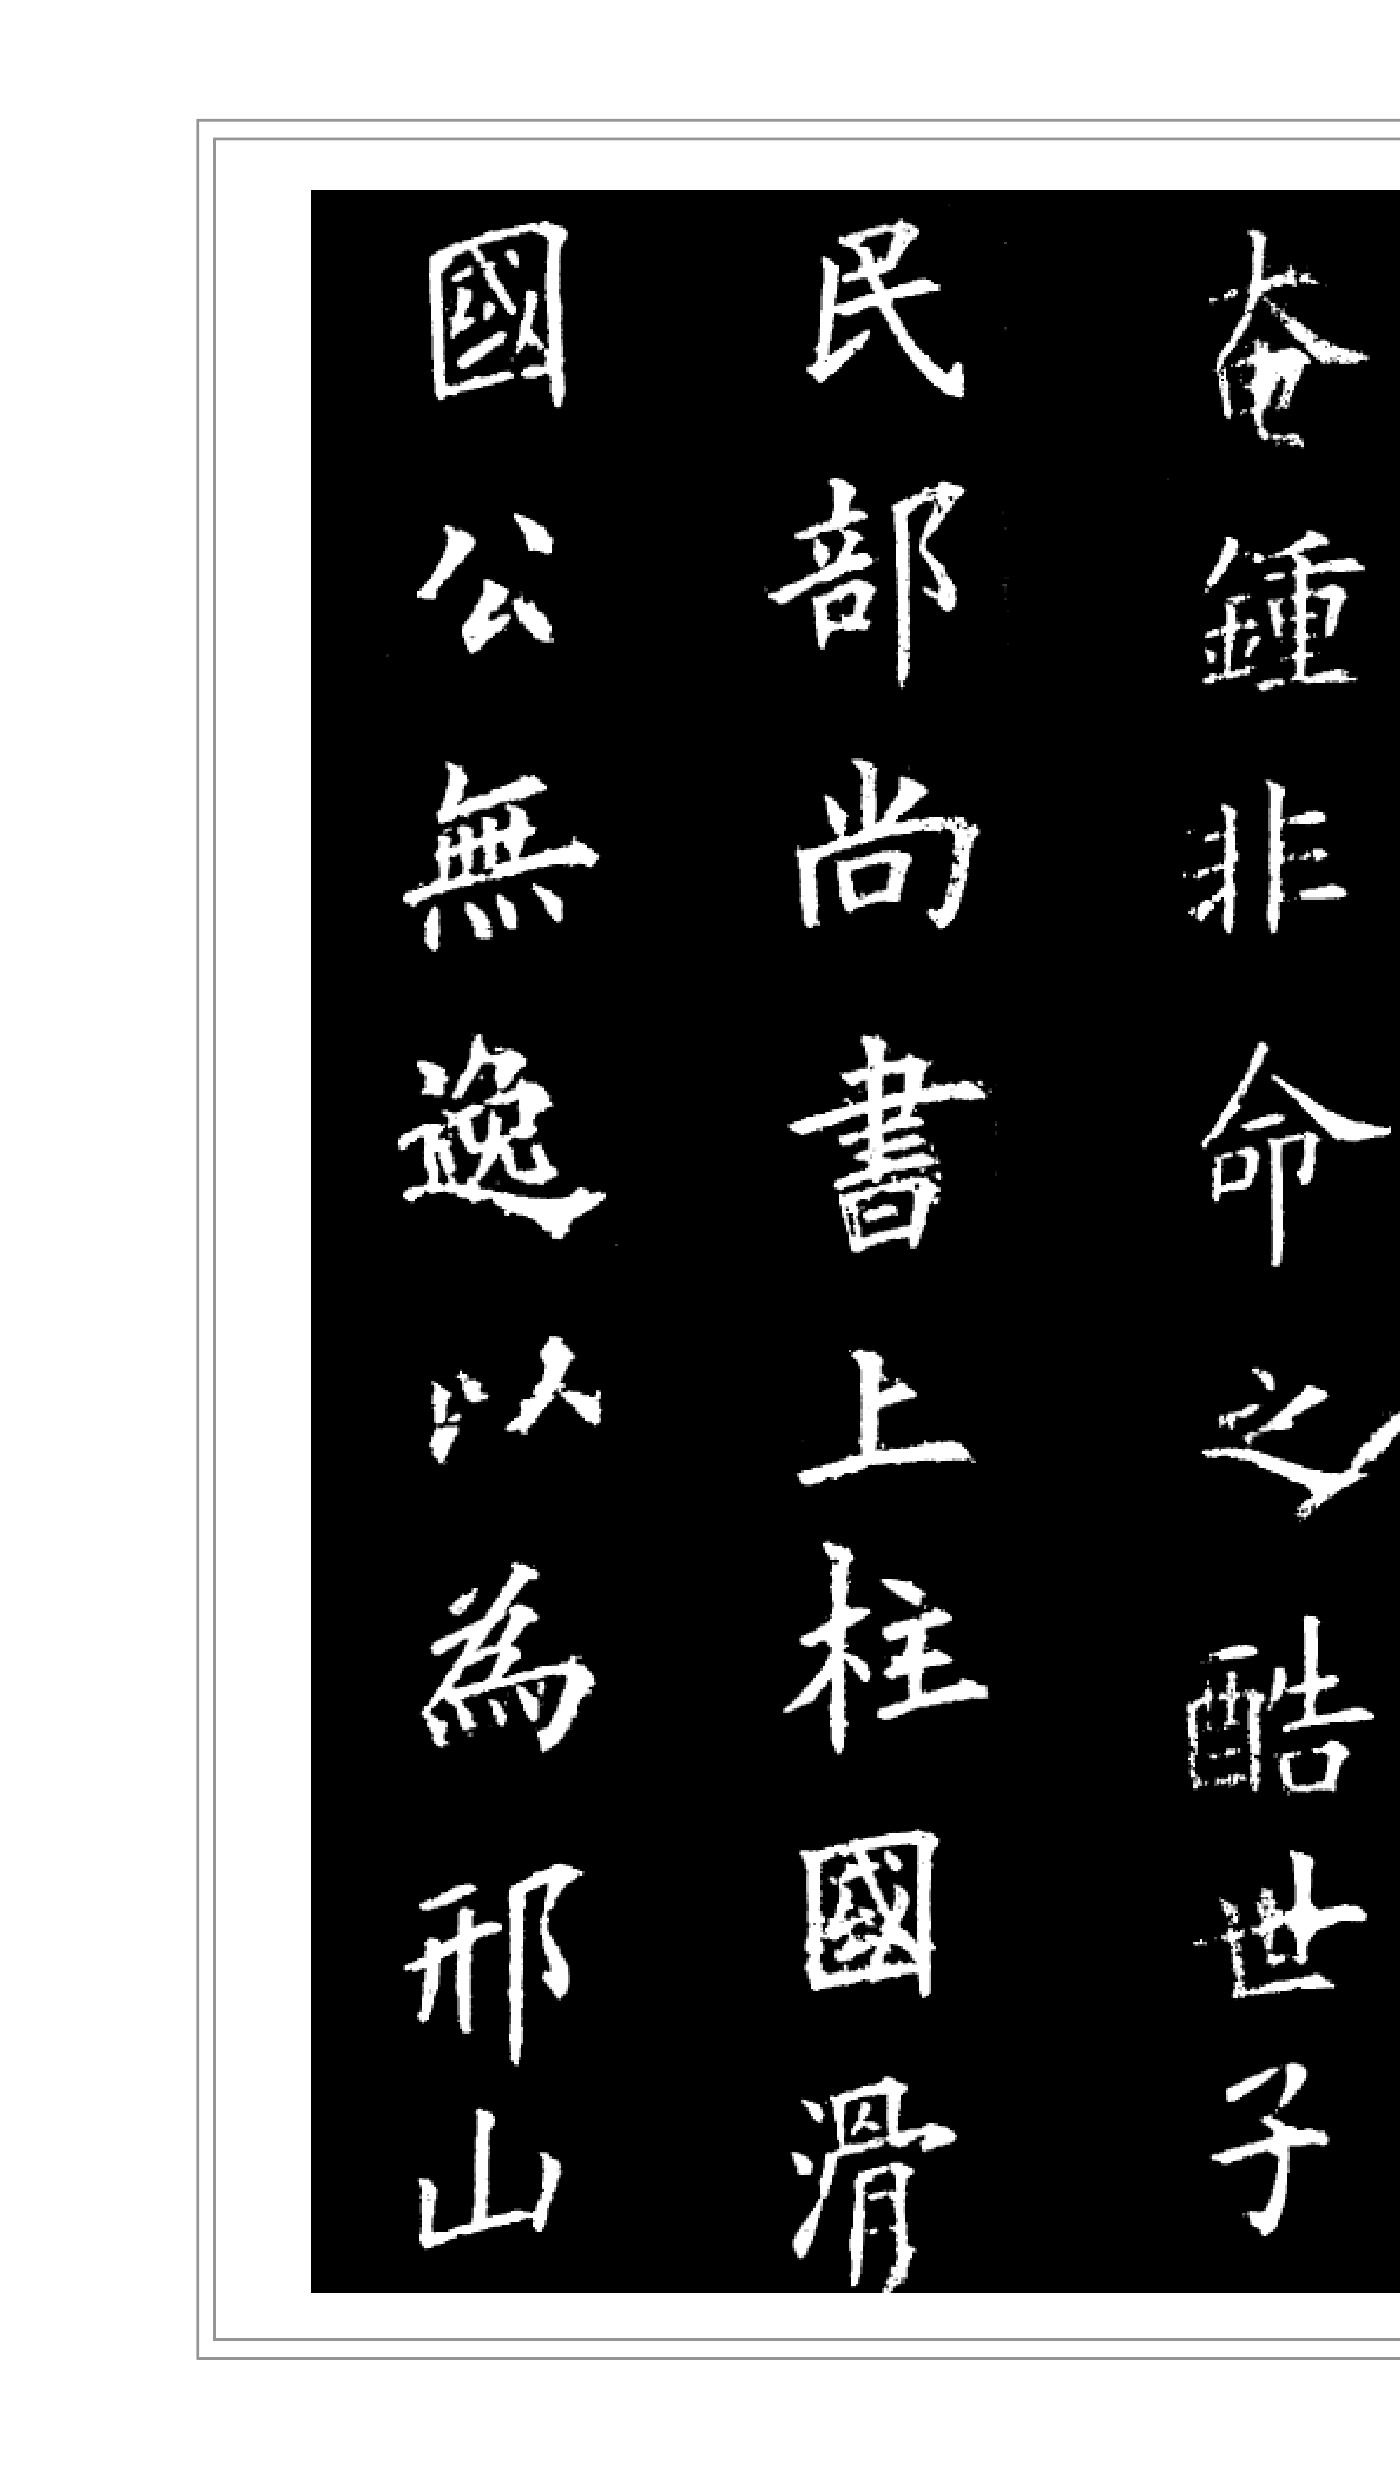 奄鍾非命之酷世子
民部尚書上柱國滑
國公無逸以為邢山